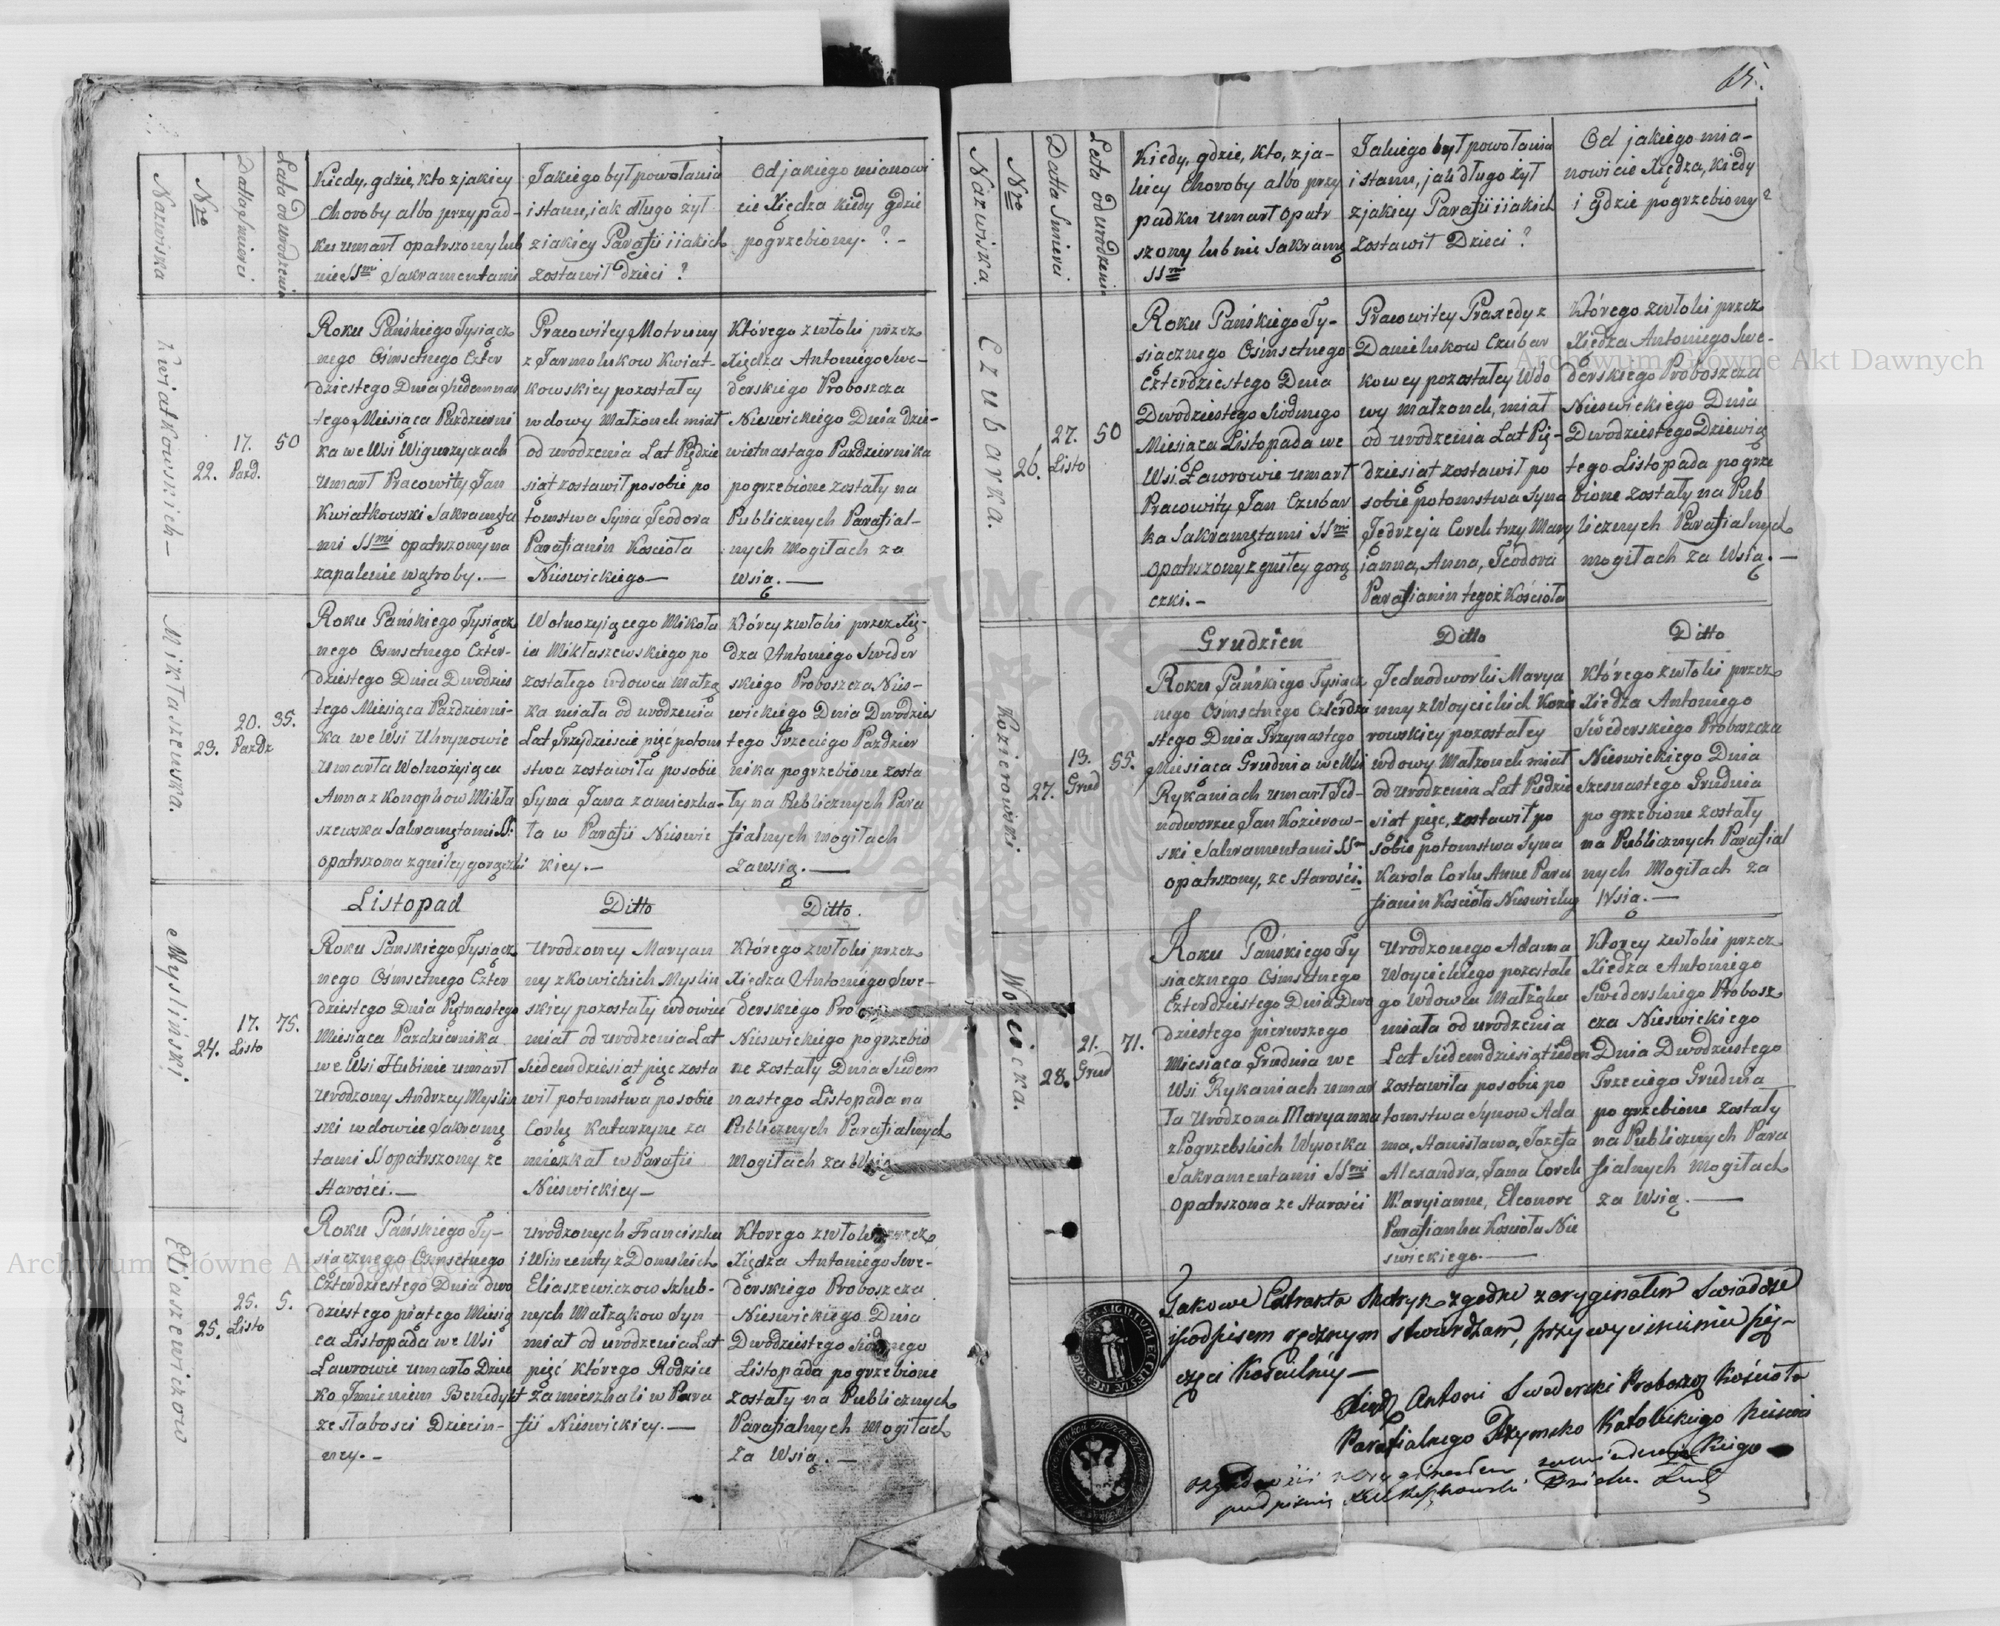 65.
Nazwiska
Nro
Datta śmierci
Lata od urodzenia
Kiedy, gdzie, kto z jakiey
Choroby albo przypad-
ku umarł opatrszony lub
nie SSmi Sakramentami
Jakiego był powołania
i stanu, jak długo żył
z iakiey Parafii i iakich
zostawił dzieci ?
Od jakiego mianowi
cie Xiędza kiedy gdzie
pogrzebiony. ? -
Kwiatkowskich -
22.
17.
Pazd.
50
Roku Pańskiego Tysiącz
nego Ośmsetnego Czter
dziestego Dnia siedemnas
tego Miesiąca Pazdzierni
ka we Wsi Wiguryczach
umarł Pracowity Jan
Kwiatkowski Sakramęta
mi SSmi opatrszony na
zapalenie wątroby. —
Pracowitey Motruny
z Jarmolukow Kwiat-
kowskiey pozostałey
wdowy Małżonek miał
od urodzenia Lat Pięćdzie
siąt zostawił po sobie po
tomstwa Syna Teodora
Parafianin Kościoła
Nieswickiego—
Którego zwłoki przez
Xiędza Antoniego Swe-
derskiego Proboszcza
Nieswickiego Dnia dzie-
wietnastego Pazdziernika
pogrzebione zostały na
Publicznych Parafial-
nych Mogiłach za
Wsią. —
Mikłaszewska.
23.
20.
Pazdz
35.
Roku Pańskiego Tysiącz
nego Ośmsetnego Czter-
dziestego Dnia Dwudzies
tego Miesiąca Pazdzierni-
ka we Wsi Uhrynowie
umarła Wolnożyiąca
Anna z Konopkow Mikła
szewska Sakramętami S.
opatrszona z gniłey gorączki
Wolnożyiącego Mikoła
ia Mikłaszewskiego po
zostałego wdowca Małżą
ka miała od urodzenia
Lat Trzydzieście pięć potom
stwa zostawiła po sobie
Syna Jana zamieszka-
ła w Parafii Nieswic
kiey. —
Którey zwłoki przez Xię-
dza Antoniego Sweder
skiego Proboszcza Nies-
wickiego Dnia Dwudzies
tego Trzeciego Pazdzier
nika pogrzebione zosta
ły na Publicznych Para
fialnych Mogiłach
za Wsią. —
Listopad
Ditto
Ditto.
Mysliński
24.
17.
Listo
75.
Roku Pańskiego Tysiącz
nego Ośmsetnego Czter
dziestego Dnia Piętnastego
Miesiąca Pazdziernika
we Wsi Hubinie umarł
Urodzony Andrzey Myslin
ski wdowiec Sakramę
tami S opatrszony ze
Starości. —
Urodzoney Maryan
ny z Kowickich Myslin
skiey pozostały wdowiec
miał od urodzenia Lat
Siedemdziesiąt pięc zosta
wił potomstwa po sobie
Corkę Katarzyne za
mieszkał w Parafii
Nieswickiey —
Którego zwłoki przez
Xiędza Antoniego Swe-
derskiego
Nieswickiego pogrzebio
ne zostały Dnia Siedem
nastego Listopada na
Publicznych Parafialnych
Mogiłach za Wsią
Eliaszewiczow
25.
25.
Listo
5.
Roku Pańskiego Ty-
siącznego Ośmsetnego
Czterdziestego Dnia dwu
dziestego piątego Miesią
ca Listopada we Wsi
Lawrowie umarło Dziec
ko Imieniem Benedykt
ze słabosci Dziecin-
ney. -
Urodzonych Franciszka
i Wincenty z Domskich
Eliaszewiczow Szlub-
nych Małżąkow Syn
miał od urodzenia Lat
pięć którego Rodzice
zamieszkali w Para
fii Nieswickiey. —
Ktorego zwłoki przez
Xiędza Antoniego Swe-
derskiego Proboszcza
Nieswickiego Dnia
Dwudziestego siodmego
Listopada pogrzebione
zostały na Publicznych
Parafialnych Mogiłach
za Wsią. —
Nazwiska
Nro
Datta Smierci
Lata od urodzenia
Kiedy, gdzie, kto, z ja-
kiey Choroby albo przy
padku umarł opatr
szony lub nie Sakramę
SSmi
Jakiego był powołania
i stanu, jak długo żył
z jakiey Parafii i iakich
zostawił Dzieci ?
Od jakiego mia-
nowicie Xiędza, kiedy
i gdzie pogrzebiony ?
Czubarka.
26.
27.
Listo
50
Roku Pańskiego Ty-
siącznego Ośmsetnego
Czterdziestego Dnia
Dwudziestego Siodmego
Miesiąca Listopada we
Wsi Ławrowie umarł
Pracowity Jan Czubar
ka Sakramętami SSmi
opatrszony z gniłey gorą
czki. -
Pracowitey Praxedy z
Danielukow Czubar
kowey pozostałey Wdo
wy małżonek, miał
od urodzenia Lat Pię-
dziesiąt zostawił po
sobie potomstwa Syna
Jędrzeja Corek trzy Mary
ianna, Anna, Teodora
Parafianin tegoż Kościoła
Którego zwłoki przez
Xiędza Antoniego Swe-
derskiego Proboszcza
Nieswickiego Dnia
Dwudziestego Dziewią
tego Listopada pogrze
bione zostały na Pub
licznych Parafialnych
mogiłach za Wsią. —
Grudzien
Ditto
Ditto
Kozierowski
27.
13.
Grud
55.
Roku Pańskiego Tysiącz
nego Ośmsetnego Czterdzie
stego Dnia Trzynastego
Miesiąca Grudnia we Wsi
Rykaniach umarł Jed-
nodworzec Jan Kozierow-
ski Sakramentami SSm
opatrszony, ze Starości.
Jednodworki Marya
nny z Woycickich Kozie
rowskiey pozostałey
wdowy Małżonek miał
od urodzenia Lat Piędzie
siąt pięc, zostawił po
sobie potomstwa Syna
Karola Corke Anne Para
fianin Kościoła Nieswickieg
Którego zwłoki przez
Xiędza Antoniego
Swederskiego Proboszcza
Nieswickiego Dnia
Szesnastego Grudnia
pogrzebione zostały
na Publicznych Parafial
nych Mogiłach za
Wsią. —
Wysocka.
28.
21.
Grud
71.
Roku Pańskiego Ty
siącznego Ośmsetnego
Czterdziestego Dnia Dwu
dziestego pierwszego
Miesiąca Grudnia we
Wsi Rykaniach umar
ła Urodzona Maryanna
z Pogrzebskich Wysocka
Sakramentami SSmi
opatrszona ze Starości
Urodzonego Adama
Woycickiego pozostałe
go Wdowca Małżąka
miała od urodzenia
Lat Siedemdziesiąt ieden
zostawiła po sobie po
tomstwa Synow Ada
ma, Stanisława, Jozefa
Alexandra, Jana Corek
Maryianne, Eleonore
Parafianka Kościoła Nie
swickiego. —
Ktorey zwłoki przez
Xiedza Antoniego
Swederskiego Probosz
cza Nieswickiego
Dnia Dwudziestego
Trzeciego Grudnia
pogrzebione zostały
na Publicznych Para
fialnych Mogiłach
za Wsią. —
Jakowe Extrakta Metryk zgodne z oryginałem Swiadcze
i podpisem ręcznym stwierdzam, przy wyciśnieniu pię-
częci Kościelney —
Xiądz Antoni Swederski Proboszcz Kościoła
Parafialnego Rzymsko Katolickiego Nieswi
ckiego
Archiwum Główne Akt Dawnych
Archiwum Główne Akt Dawnych